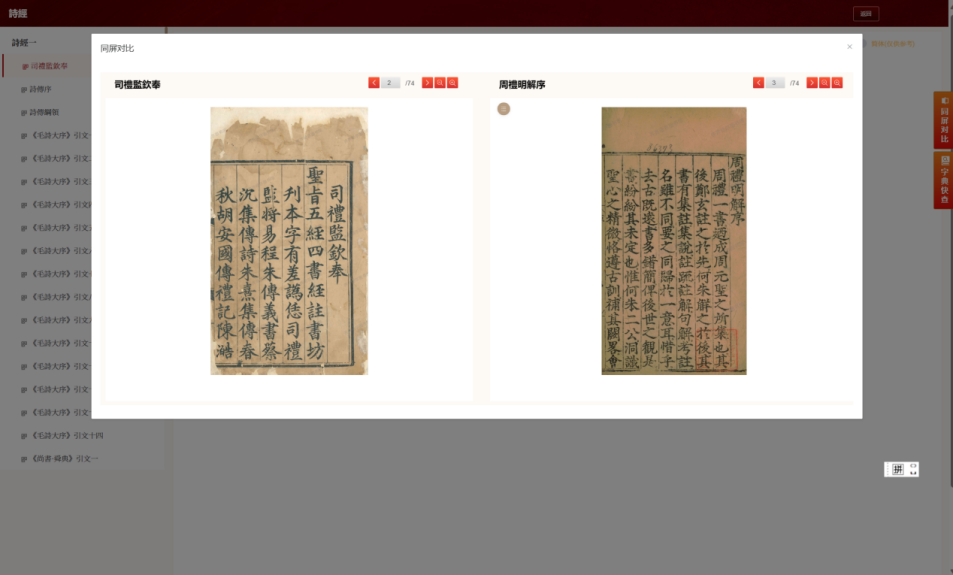 詩經
返回
詩經一
司禮監欽奉
詩傳序
詩傳綱領
《毛詩大序》引文
《毛詩大序》引文
《毛詩大序》引文
《毛詩大序》引文
《毛詩大序》引文
《毛詩大序》引文
《毛詩大序》引文
《毛詩大序》引文
《毛詩大序》引文
《毛詩大序》引文
《毛詩大序》引文
《毛詩大序》引文
《毛詩大序》引文
《毛詩大序》引文十四
《尚書·舜典》引文一
同屏对比
×
司禮監欽奉
2 /74
司禮監欽奉
聖旨五經四書經註書坊
刊本字有差譌恁司禮
監將易程朱傳義書蔡
沉集傳詩朱熹集傳春
秋胡安國傳禮記陳澔
周禮明解序
3 /74
周禮明解序
周禮一書迺成周元聖之所集也其
後鄭玄註之於先何朱辭之於後其
書有集註集說註疏註解句解考註
名雖不同要之同歸於一意耳惜乎
去古既遠書多錯簡俾後世之觀是
書紛紛其未定也惟何朱二公洞識
聖心之精微恪遵古訓補其闕畧會
同屏对比
字典快查
拼